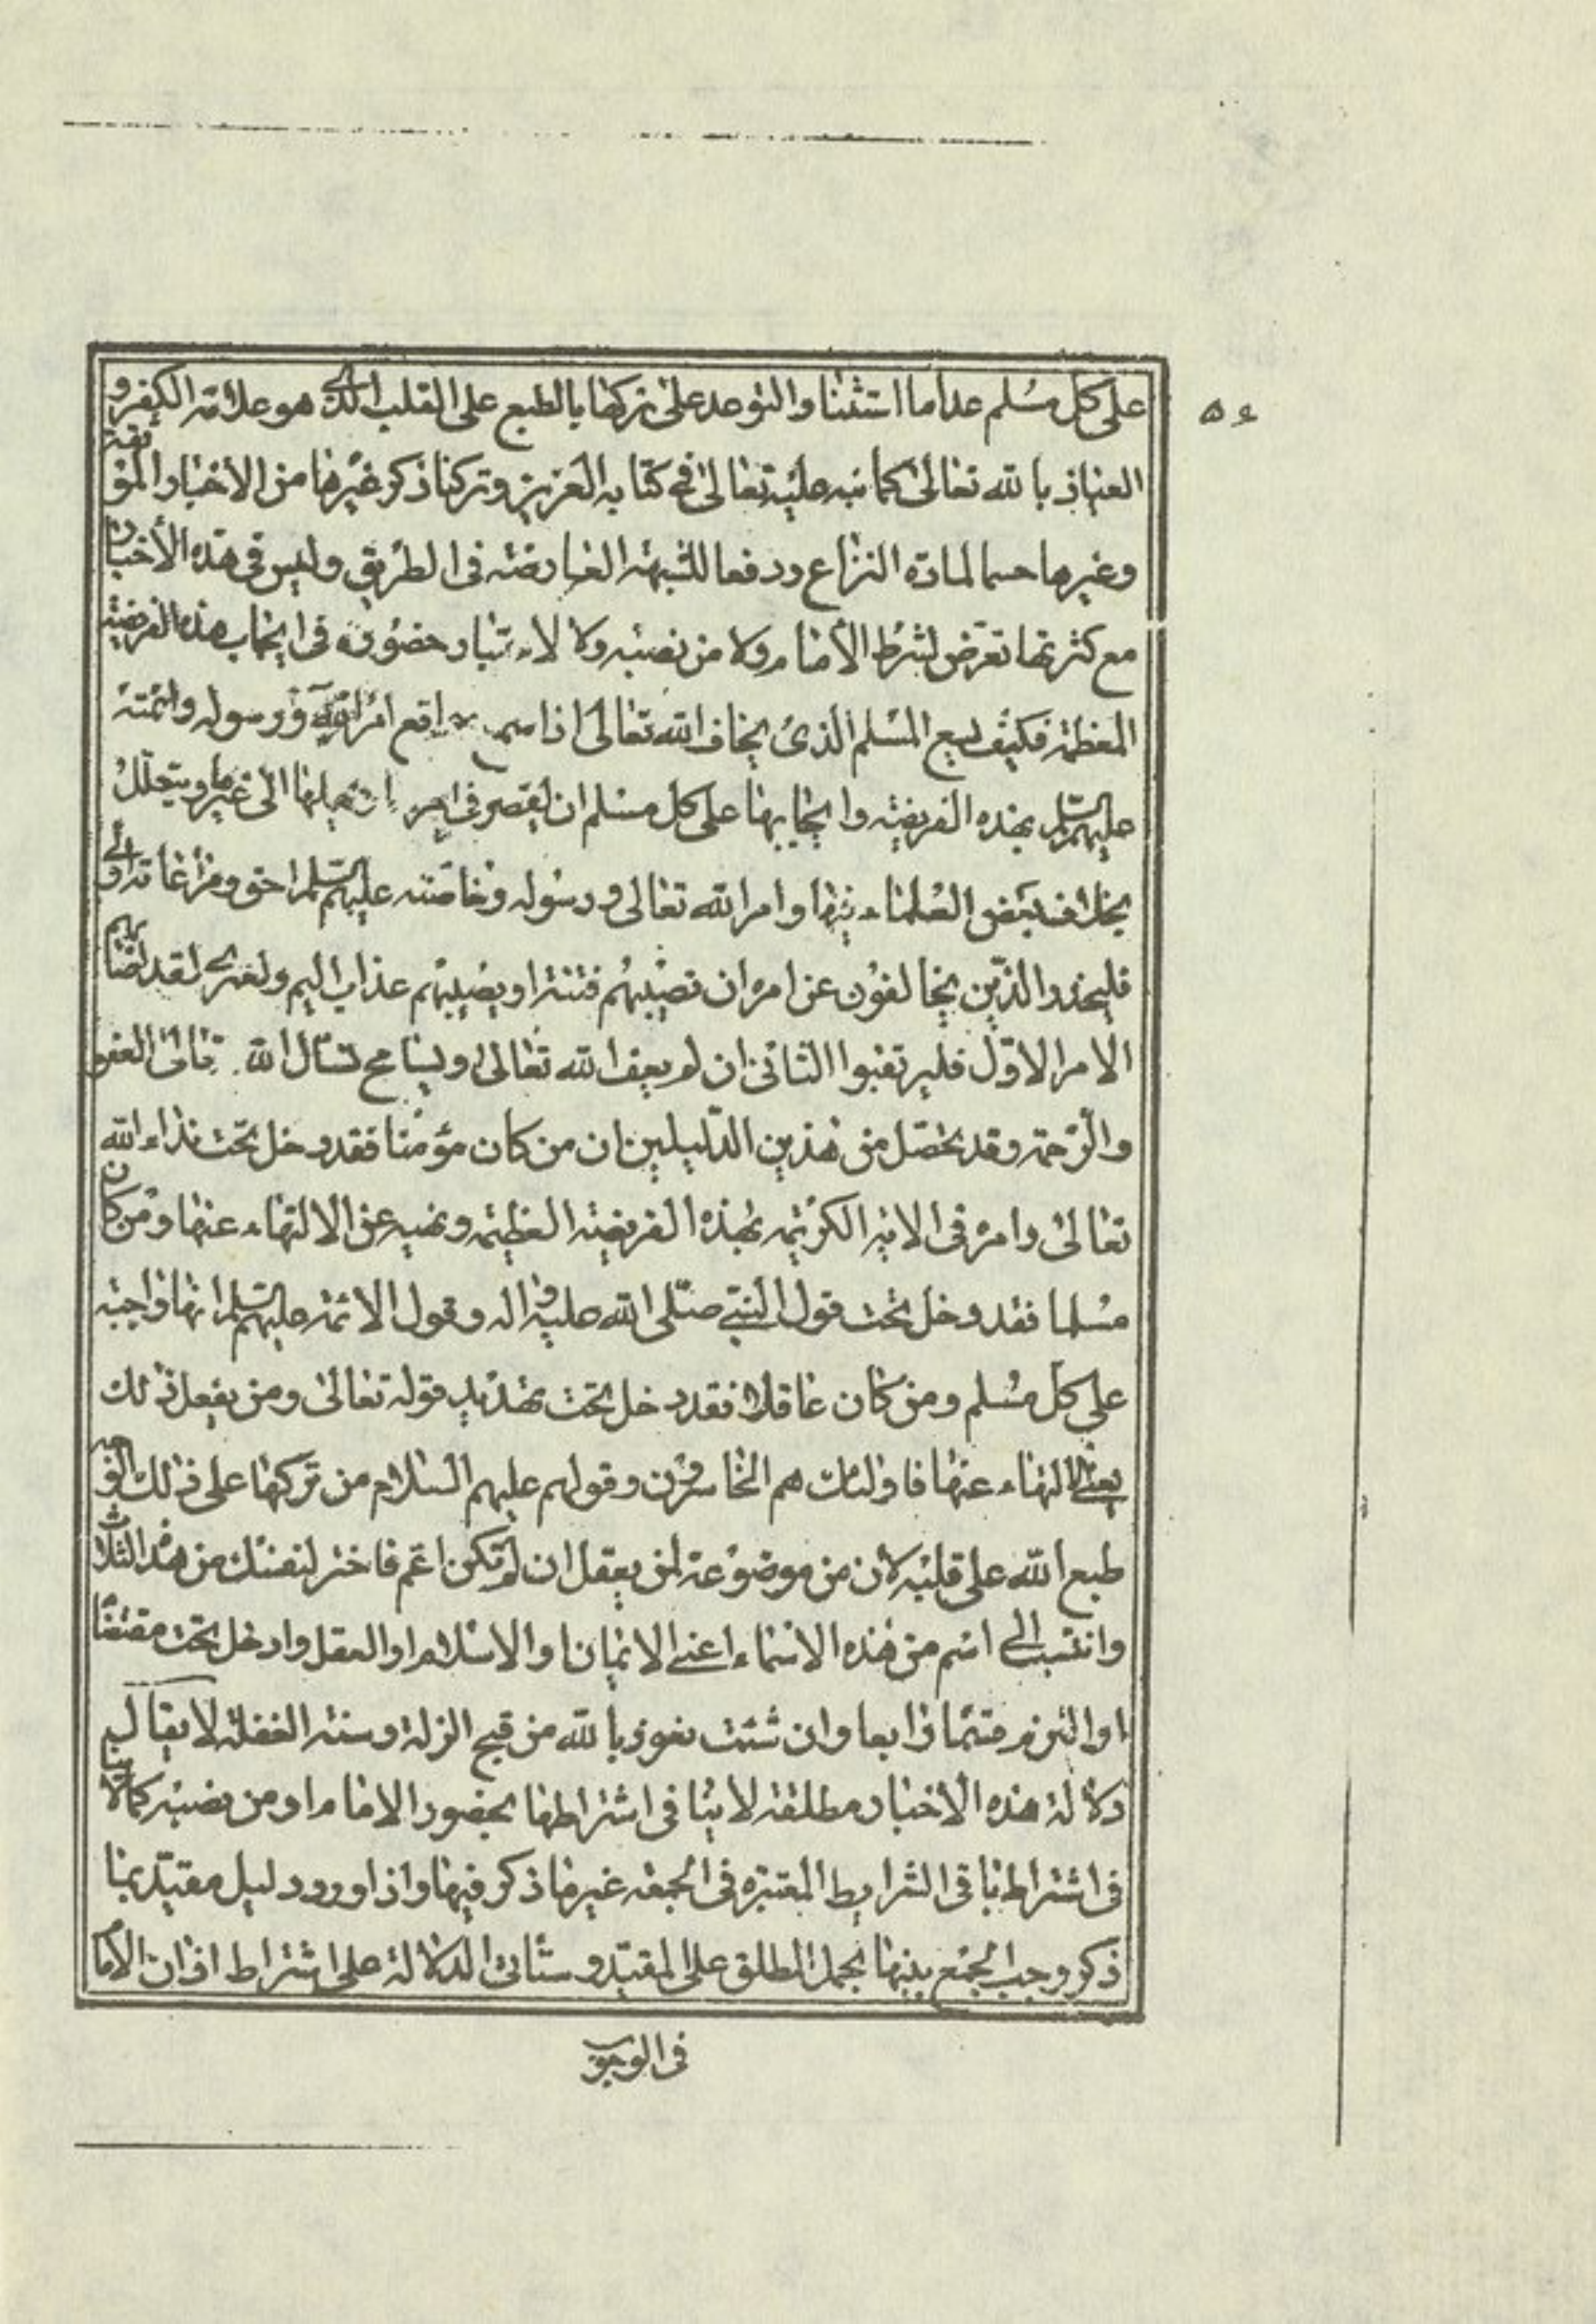 على كل مسلم عدا ما استثنا والتوعد على تركها بالطبع على القلب الذى هو علامة الكفر و
العياذ بالله تعالى كما نبه عليه تعالى فى كتابه العزيز وتركنا ذكر غيرها من الاخبار الموثقة
وغيرها حسما لمادة النزاع ودفعا للشبهة العارضة فى الطريق وليس فى هذه الأخبار
مع كثرتها تعرض لشرط الأمام ولا من نصبه ولا لاعتبار حضوره فى ايجاب هذه الفريضة
المعظمة فكيف يسع المسلم الذى يخاف الله تعالى اذا سمع مواقع امر الله ورسوله وائمته
عليهم السلم بهذه الفريضة وايجابها على كل مسلم ان يقصر فى امرها ويتعلل
بخلاف بعض العلماء فيها وامر الله تعالى ورسوله وخاصته عليهم السلم احق ومراعاته اولى
فليحذر الذين يخالفون عن امره ان تصيبهم فتنة او يصيبهم عذاب اليم ولعمرى لقد اصابهم
الامر الاول فليرتقبوا الثانى ان لم يعف الله تعالى ويسامح نسال الله تعالى العفو
والرحمة وقد يحصل من هذين الدليلين ان من كان مؤمنا فقد دخل تحت نداء الله
تعالى وامره فى الاية الكريمة بهذه الفريضة العظيمة ونهيه عن الالتهاء عنها ومن كان
مسلما فقد دخل تحت قول النبى صلى الله عليه واله وقول الائمة عليهم السلم انها واجبة
على كل مسلم ومن كان عاقلا فقد دخل تحت تهديد قوله تعالى ومن يفعل ذلك
يعنى الالتهاء عنها فاولئك هم الخاسرون وقولهم عليهم السلام من تركها على ذلك الوجه
طبع الله على قلبه لان من موضوعة لمن يعقل ان لم تكن اعم فاختر لنفسك من هذه الثلاث
وانتسب الى اسم من هذه الاسماء اعنى الايمان والاسلام او العقل وادخل تحت مقتضاه
او التزم قسما رابعا وان شئت نعوذ بالله من قبح الزلة وسنة الغفلة لا يقال
دلالة هذه الاخبار مطلقة لا ينافى اشتراطها بحضور الامام او من نصبه كما لا ينا
فى اشتراط باقى الشرايط المعتبرة فى الجمعة غير ما ذكر فيها واذا ورد دليل مقيد بما
ذكر وجب الجمع بينها بحمل المطلق على المقيد وستأتى الدلالة على اشتراط اذن الامام
فى الوجوب